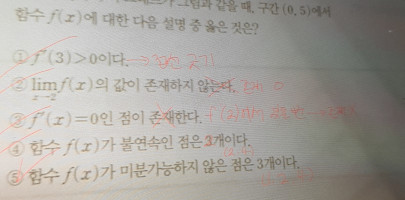 그림과 같을 때, 구간 (0, 5)에서
함수 f(x)에 대한 다음 설명 중 옳은 것은?
① f′(3)>0이다.
② lim x→2 f(x)의 값이 존재하지 않는다.
③ f′(x)=0인 점이 존재한다.
④ 함수 f(x)가 불연속인 점은 3개이다.
⑤ 함수 f(x)가 미분가능하지 않은 점은 3개이다.